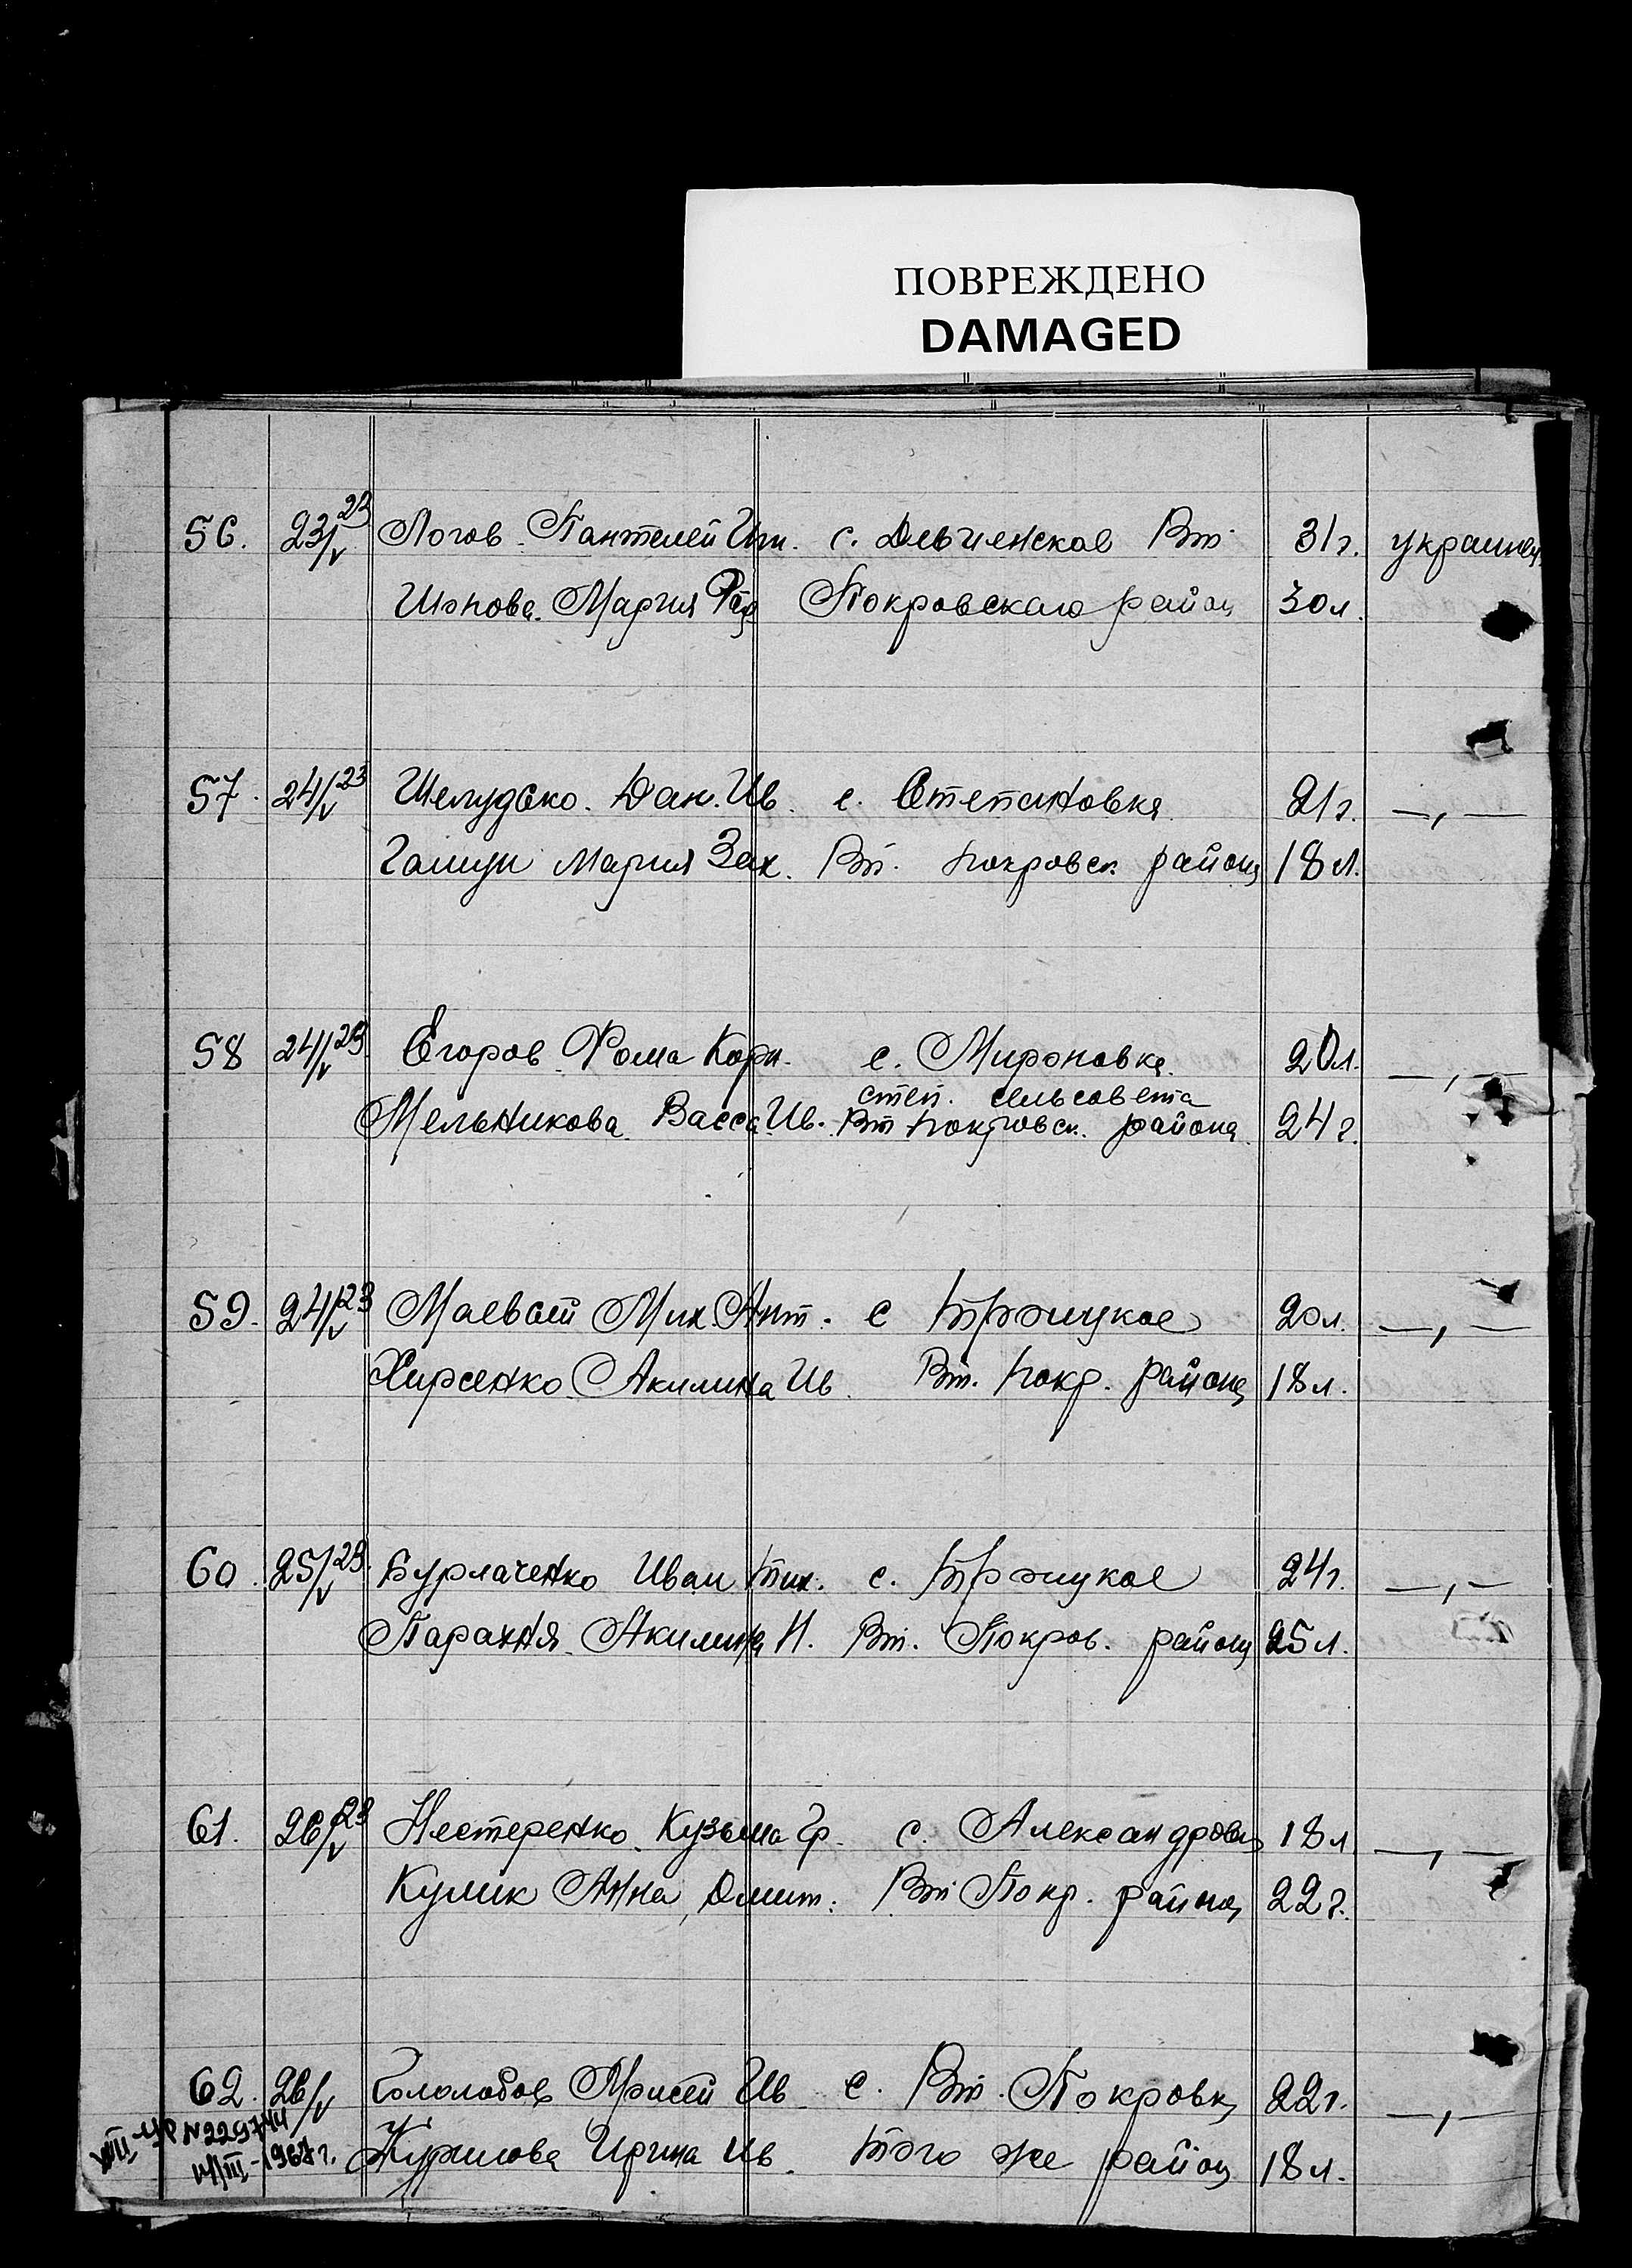 ПОВРЕЖДЕНО
DAMAGED
56. 23/V 23 Логов Пантелей с. Вт 31 г. украинец
Мария Покровскаго район 30 л.
57. 24/V 23 Шелудько Дан. Ив. с. Степановка 21 г. —„—
Мария Зах. Вт. покровск. района 18 л.
58 24/V 23 Егоров Фома Корн. с. Мироновка 20 л. —„—
степ. сельсовета
Мельникова Васса Ив. Вт покровск. района 24 г.
59. 24/V 23 Маевский Мих. Ант. с Троицкое 20 л. —„—
Хирсенко Акилина Ив. Вт. покр. района 18 л.
60. 25/V 23 Бурлаченко Иван Тих. с. Троицкое 24 г. —„—
Парахня Акилина И. Вт. Покров. района 25 л.
61. 26/V 23 Нестеренко Кузьма Гр. с. Александровка 18 л —„—
Кулик Анна Дмит. Вт Покр. района 22 г.
62. 26/V Гололобов Мойсей Ив с. Вт. Покровка 22 г. —„—
Журилова Ирина Ив. того же района 18 л.
XVIII-УР N 229744
14/III-1967 г.